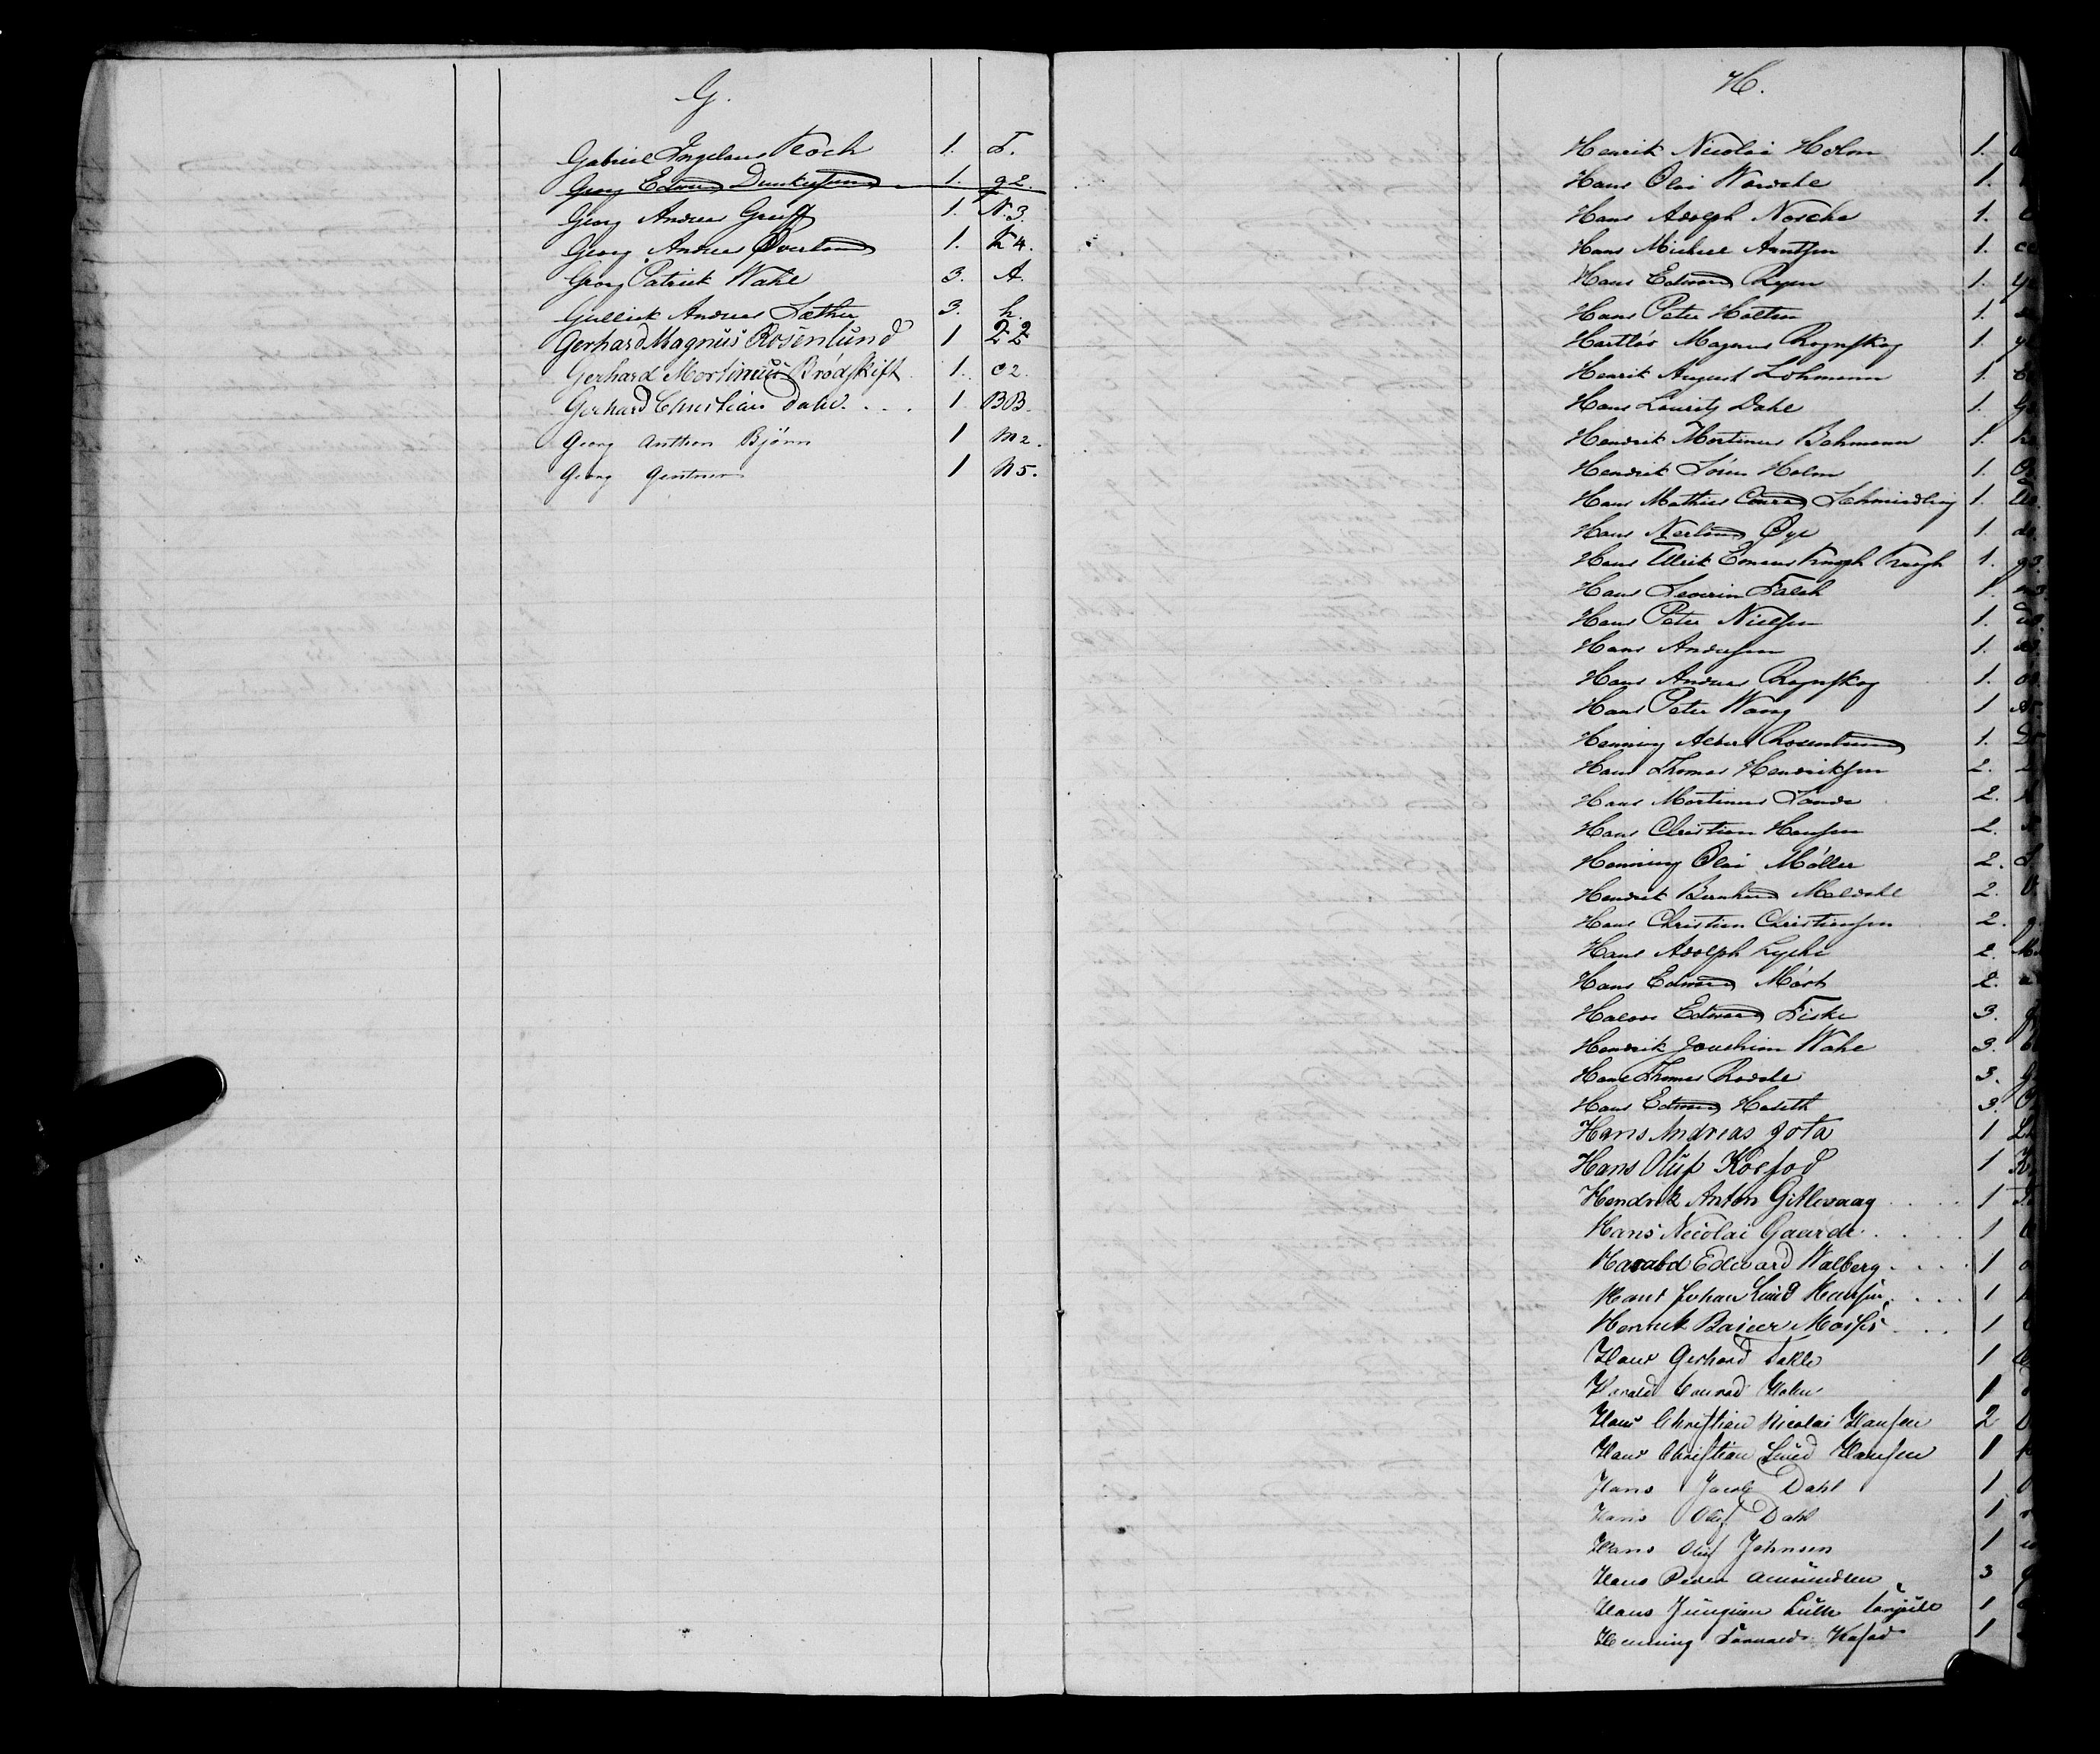 G.
Gabriel Ingelaus Koch 1. F.
Georg Edvard Dunkersund 1. g2.
Georg Andreas Greiff 1. N.3.
Georg Andreas Øverland 1. K4.
Georg Patrick Wahl 3. A.
Gullick Andreas Sæther 3. h.
Gerhard Magnus Rosenlund 1 Z2
Gerhard Mortinus Brødskift 1. c2.
Gerhard Christian Dahl.... 1 BB.
Georg Anthon Bjørn 1 M2.
Georg Gentner 1 N5.
H.
Henrik Nicolai Holm 1.
Hans Olai 1.
Hans Adolph Nosche 1.
Hans Michael Arntsen 1.
Hans Edvard Ryen 1.
Hans Peter Holten 1.
Magnus Rognskog 1.
Henrik August Lohmann 1.
Hans Lauritz Dahl 1.
Hendrik Mortinus Bohmann 1.
Hendrik Sørin Holm 1.
Hans Mathias Conrad Schmedling 1.
Hans Nerland Øye 1.
Hans Ulrik Krogh 1. g3.
Hans Severin Falck 1.
Hans Peter Nielsen 1.
Hans Andersen 1.
Hans Andreas Rognskog 1.
Hans Peter Wang 1
Henning Albert Rosenlund 1.
Hans Thomas Hendriksen 2.
Hans Mortinus Sande 2.
Hans Christian Hansen 2.
Henning Olai Møller 2.
Hendrik Bernhard Meldahl 2.
Hans Christian Christiansen 2.
Hans Adolph Lyche 2.
Hans Edvard Mørk 2.
Halvor Edvard Fiske 3.
Hendrik Joachim Wahl 3.
Hans Thomas 3.
Hans Edvard Haseth 3.
Hans Andreas Gøta 1
Hans Oluf Kofod 1
Hendrik Anton Gitlevaag.... 1
Hans Nicolai Gaarde..... 1
Harald Edvard Walberg.... 1
Hans Johan Lund Hansen.... 1
Henrik Moses.... 1
Hans Gerhard Fakle 1
Harald Conrad Holm 1
Hans Christian Nicolai Hansen 2
Hans Christian Lund Hansen 1
Hans Jacob Dahl 1
Hans Oluf Dahl 1
Hans Oluf Johnsen 1
Hans Peder Amundsen 3
Hans Jürgen Lüth 1
Henning Kofod 1